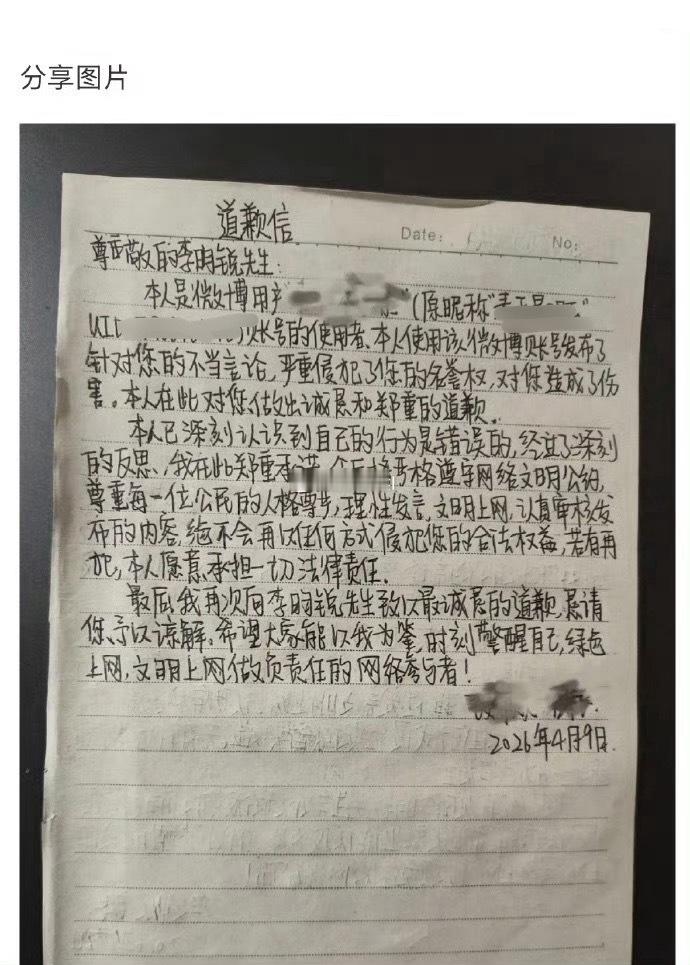 分享图片
道歉信
Date:
No:
尊敬的李昀锐先生：
本人是微博用户"（原昵称"
UID账号的使用者、本人使用该微博账号发布了
针对您的不当言论，严重侵犯了您的名誉权，对您造成了伤
害。本人在此对您做出诚恳和郑重的道歉。
本人已深刻认识到自己的行为是错误的，经过了深刻
的反思，我在此郑重承诺格遵守网络文明公约，
尊重每一位公民的人格尊严，理性发言，文明上网，认真审核发
布的内容，绝不会再以任何方式侵犯您的合法权益，若有再
犯，本人愿意承担一切法律责任.
最后，我再次向李昀锐先生致以最诚恳的道歉，恳请
您予以谅解。希望大家能以我为鉴，时刻警醒自己，绿色
上网，文明上网做负责任的网络参与者！
2026年4月9日.